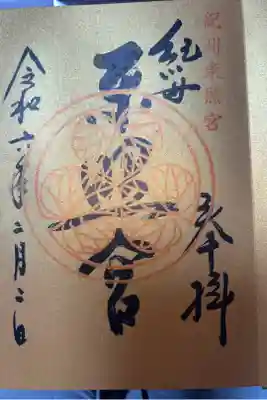 紀州東照宮
奉拝
紀州
東照宮
令和六年二月二日